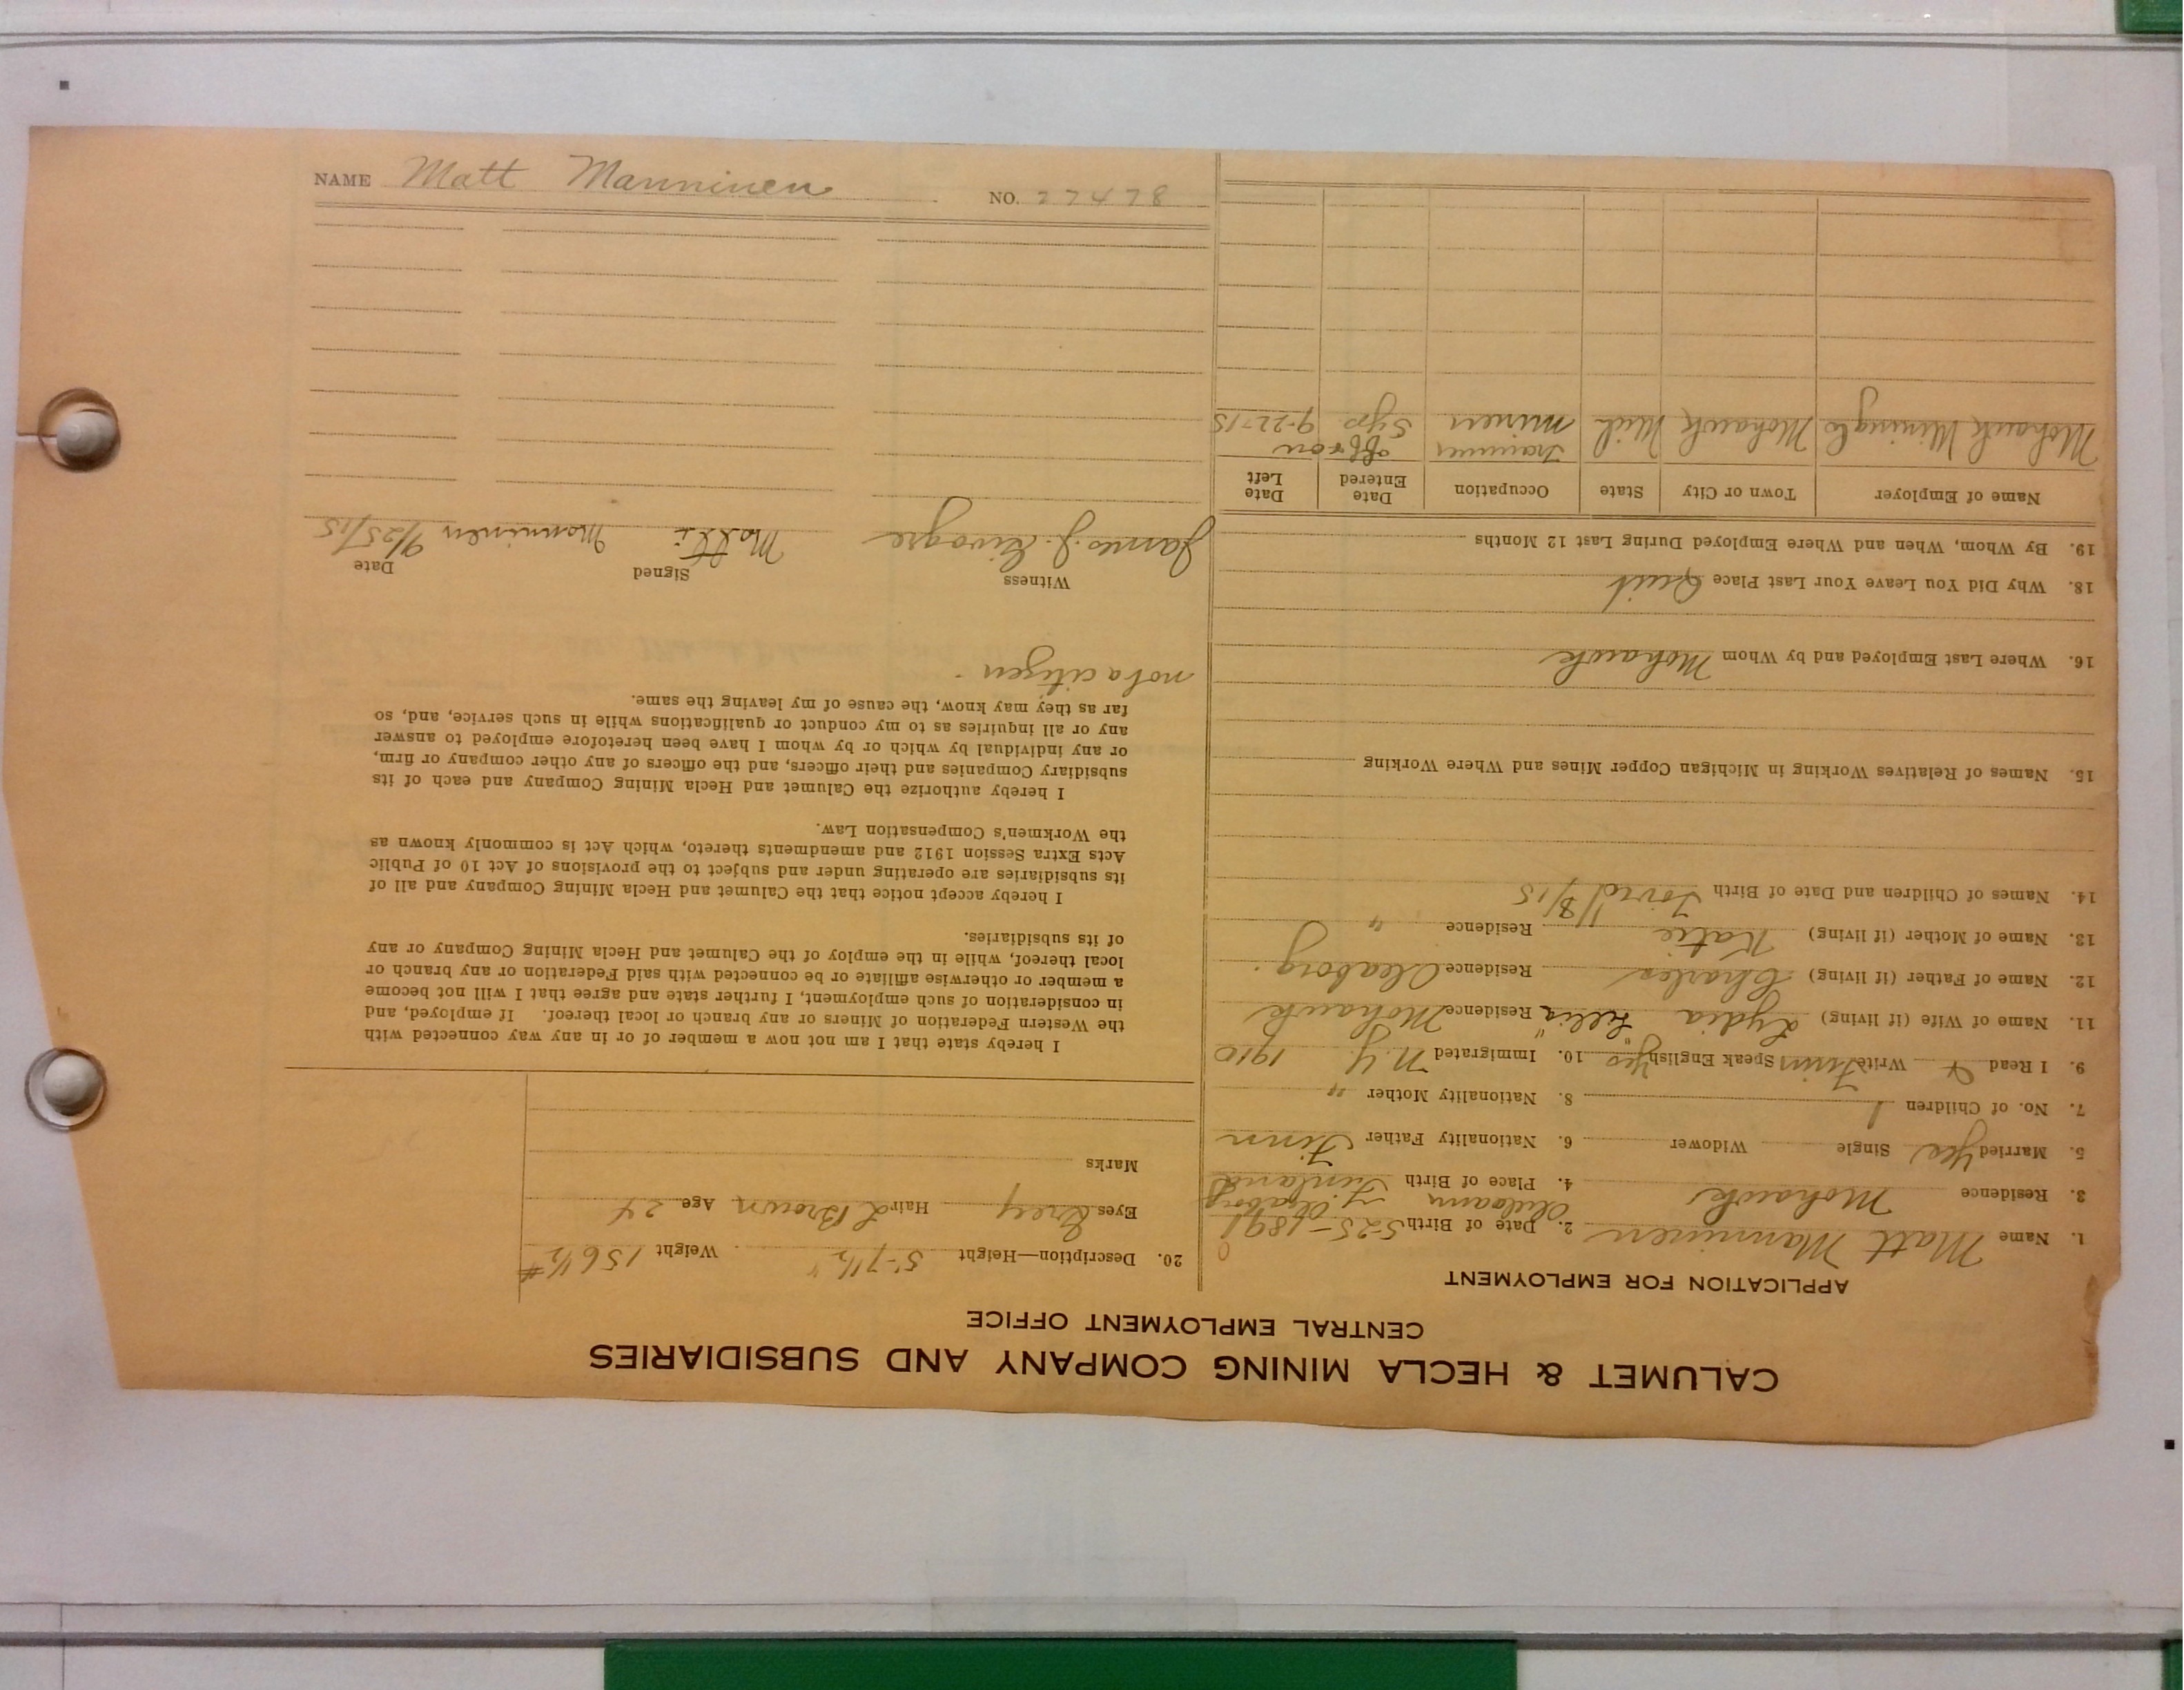 CALUMET & HECLA MINING COMPANY AND SUBSIDIARIES
CENTRAL EMPLOYMENT OFFICE
APPLICATION FOR EMPLOYMENT
1. Name Matt Manninen 2. Date of Birth 5-25-1891
3. Residence Mohawk 4. Place of Birth Finland
5. Married Yes Single Widower 6. Nationality Father Finn
7. No. of Children 1 8. Nationality Mother "
9. I Read & Write Finn Speak English Yes 10. Immigrated N.Y. 1910
11. Name of Wife (if living) Lydia Residence Mohawk
12. Name of Father (if living) Charles Residence Oleaborg
13. Name of Mother (if living) Katie Residence "
14. Names of Children and Date of Birth 1/8/15
15. Names of Relatives Working in Michigan Copper Mines and Where Working
16. Where Last Employed and by Whom Mohawk
18. Why Did You Leave Your Last Place Quit
19. By Whom, When and Where Employed During Last 12 Months
Name of Employer Town or City State Occupation Date Entered Date Left
trammer off & on
Mohawk Mining Co Mohawk Mich miner 5 yrs 9-22-15
20. Description—Height 5'-7 1/2" Weight 156 1/2 #
Eyes Grey Hair L Brown Age 24
Marks
I hereby state that I am not now a member of or in any way connected with
the Western Federation of Miners or any branch or local thereof. If employed, and
in consideration of such employment, I further state and agree that I will not become
a member or otherwise affiliate or be connected with said Federation or any branch or
local thereof, while in the employ of the Calumet and Hecla Mining Company or any
of its subsidiaries.
I hereby accept notice that the Calumet and Hecla Mining Company and all of
its subsidiaries are operating under and subject to the provisions of Act 10 of Public
Acts Extra Session 1912 and amendments thereto, which Act is commonly known as
the Workmen's Compensation Law.
I hereby authorize the Calumet and Hecla Mining Company and each of its
subsidiary Companies and their officers, and the officers of any other company or firm,
or any individual by which or by whom I have been heretofore employed to answer
any or all inquiries as to my conduct or qualifications while in such service, and, so
far as they may know, the cause of my leaving the same.
not a citizen
Witness Signed Date
James J. Matti Manninen 9/25/15
NAME Matt Manninen NO. 27478